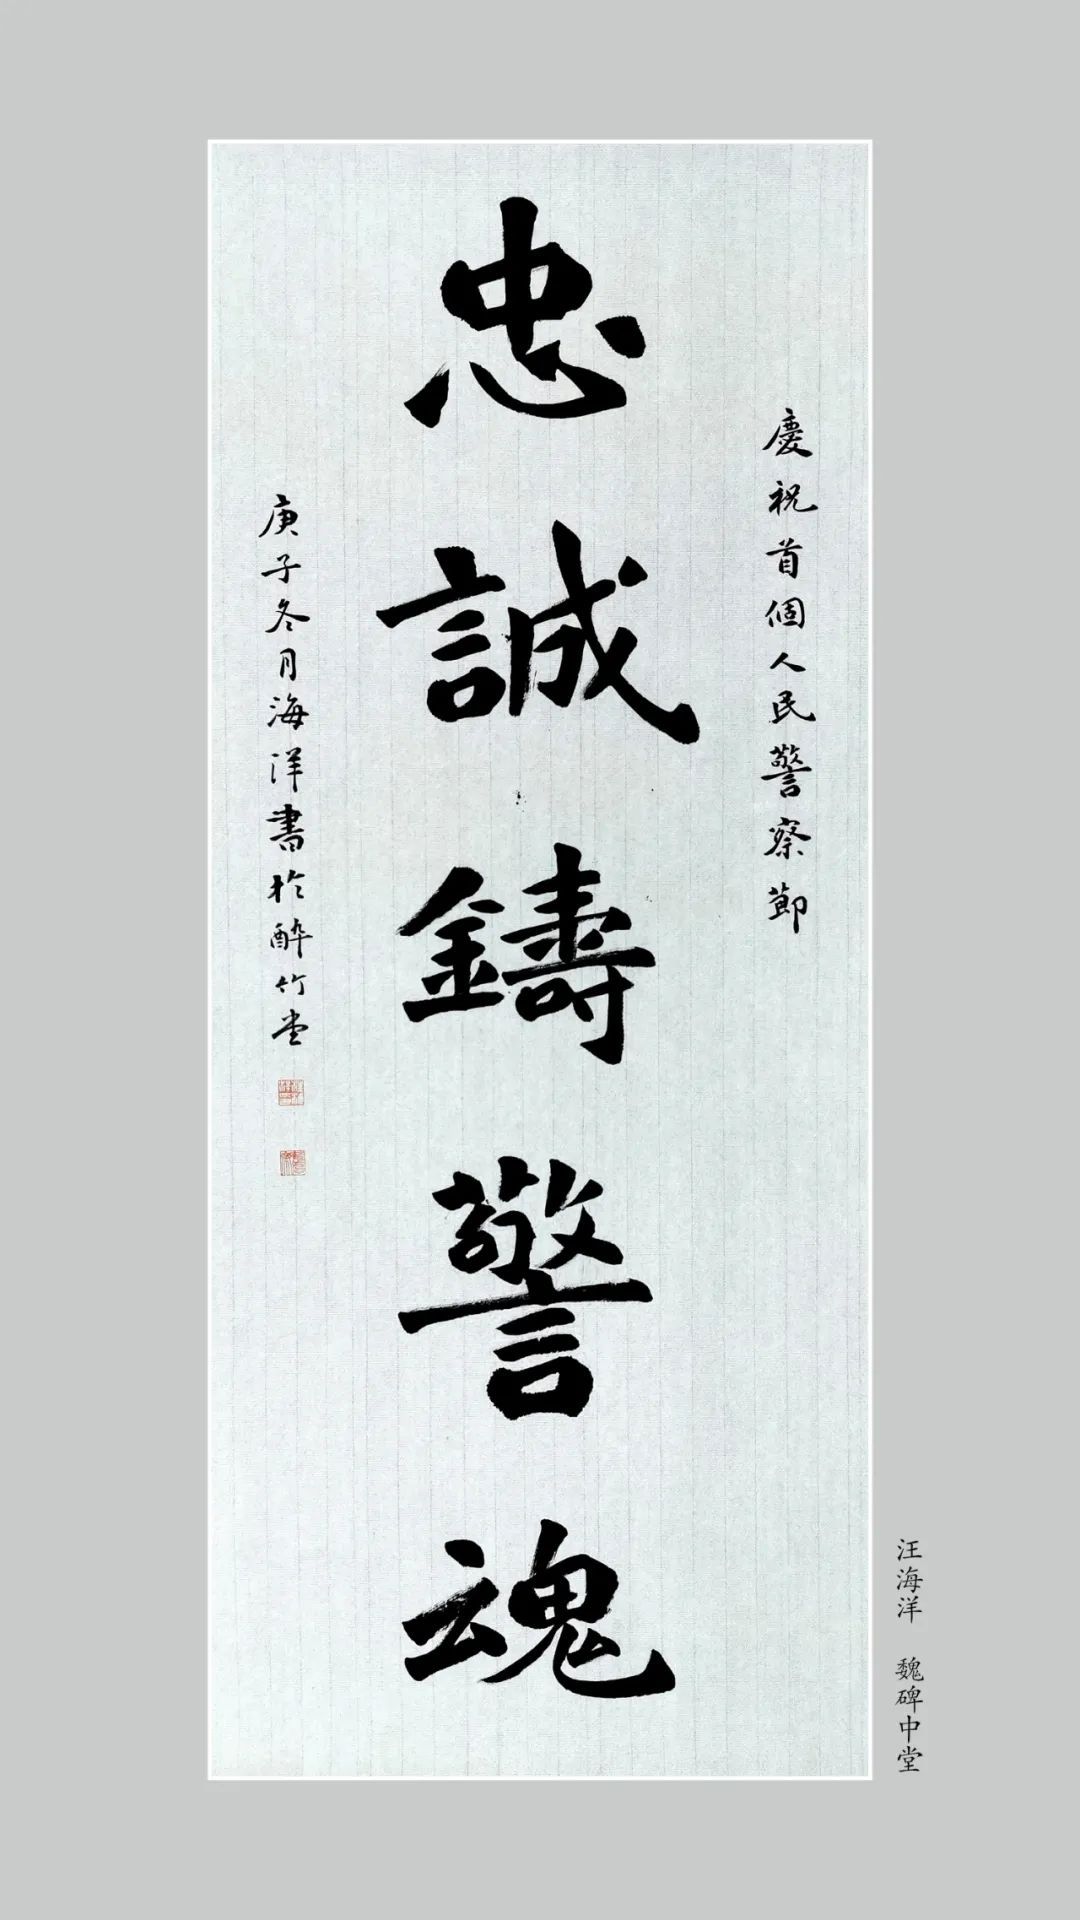 慶祝首個人民警察節
忠誠鑄警魂
庚子冬月海洋書於醉竹堂
汪海洋 魏碑中堂